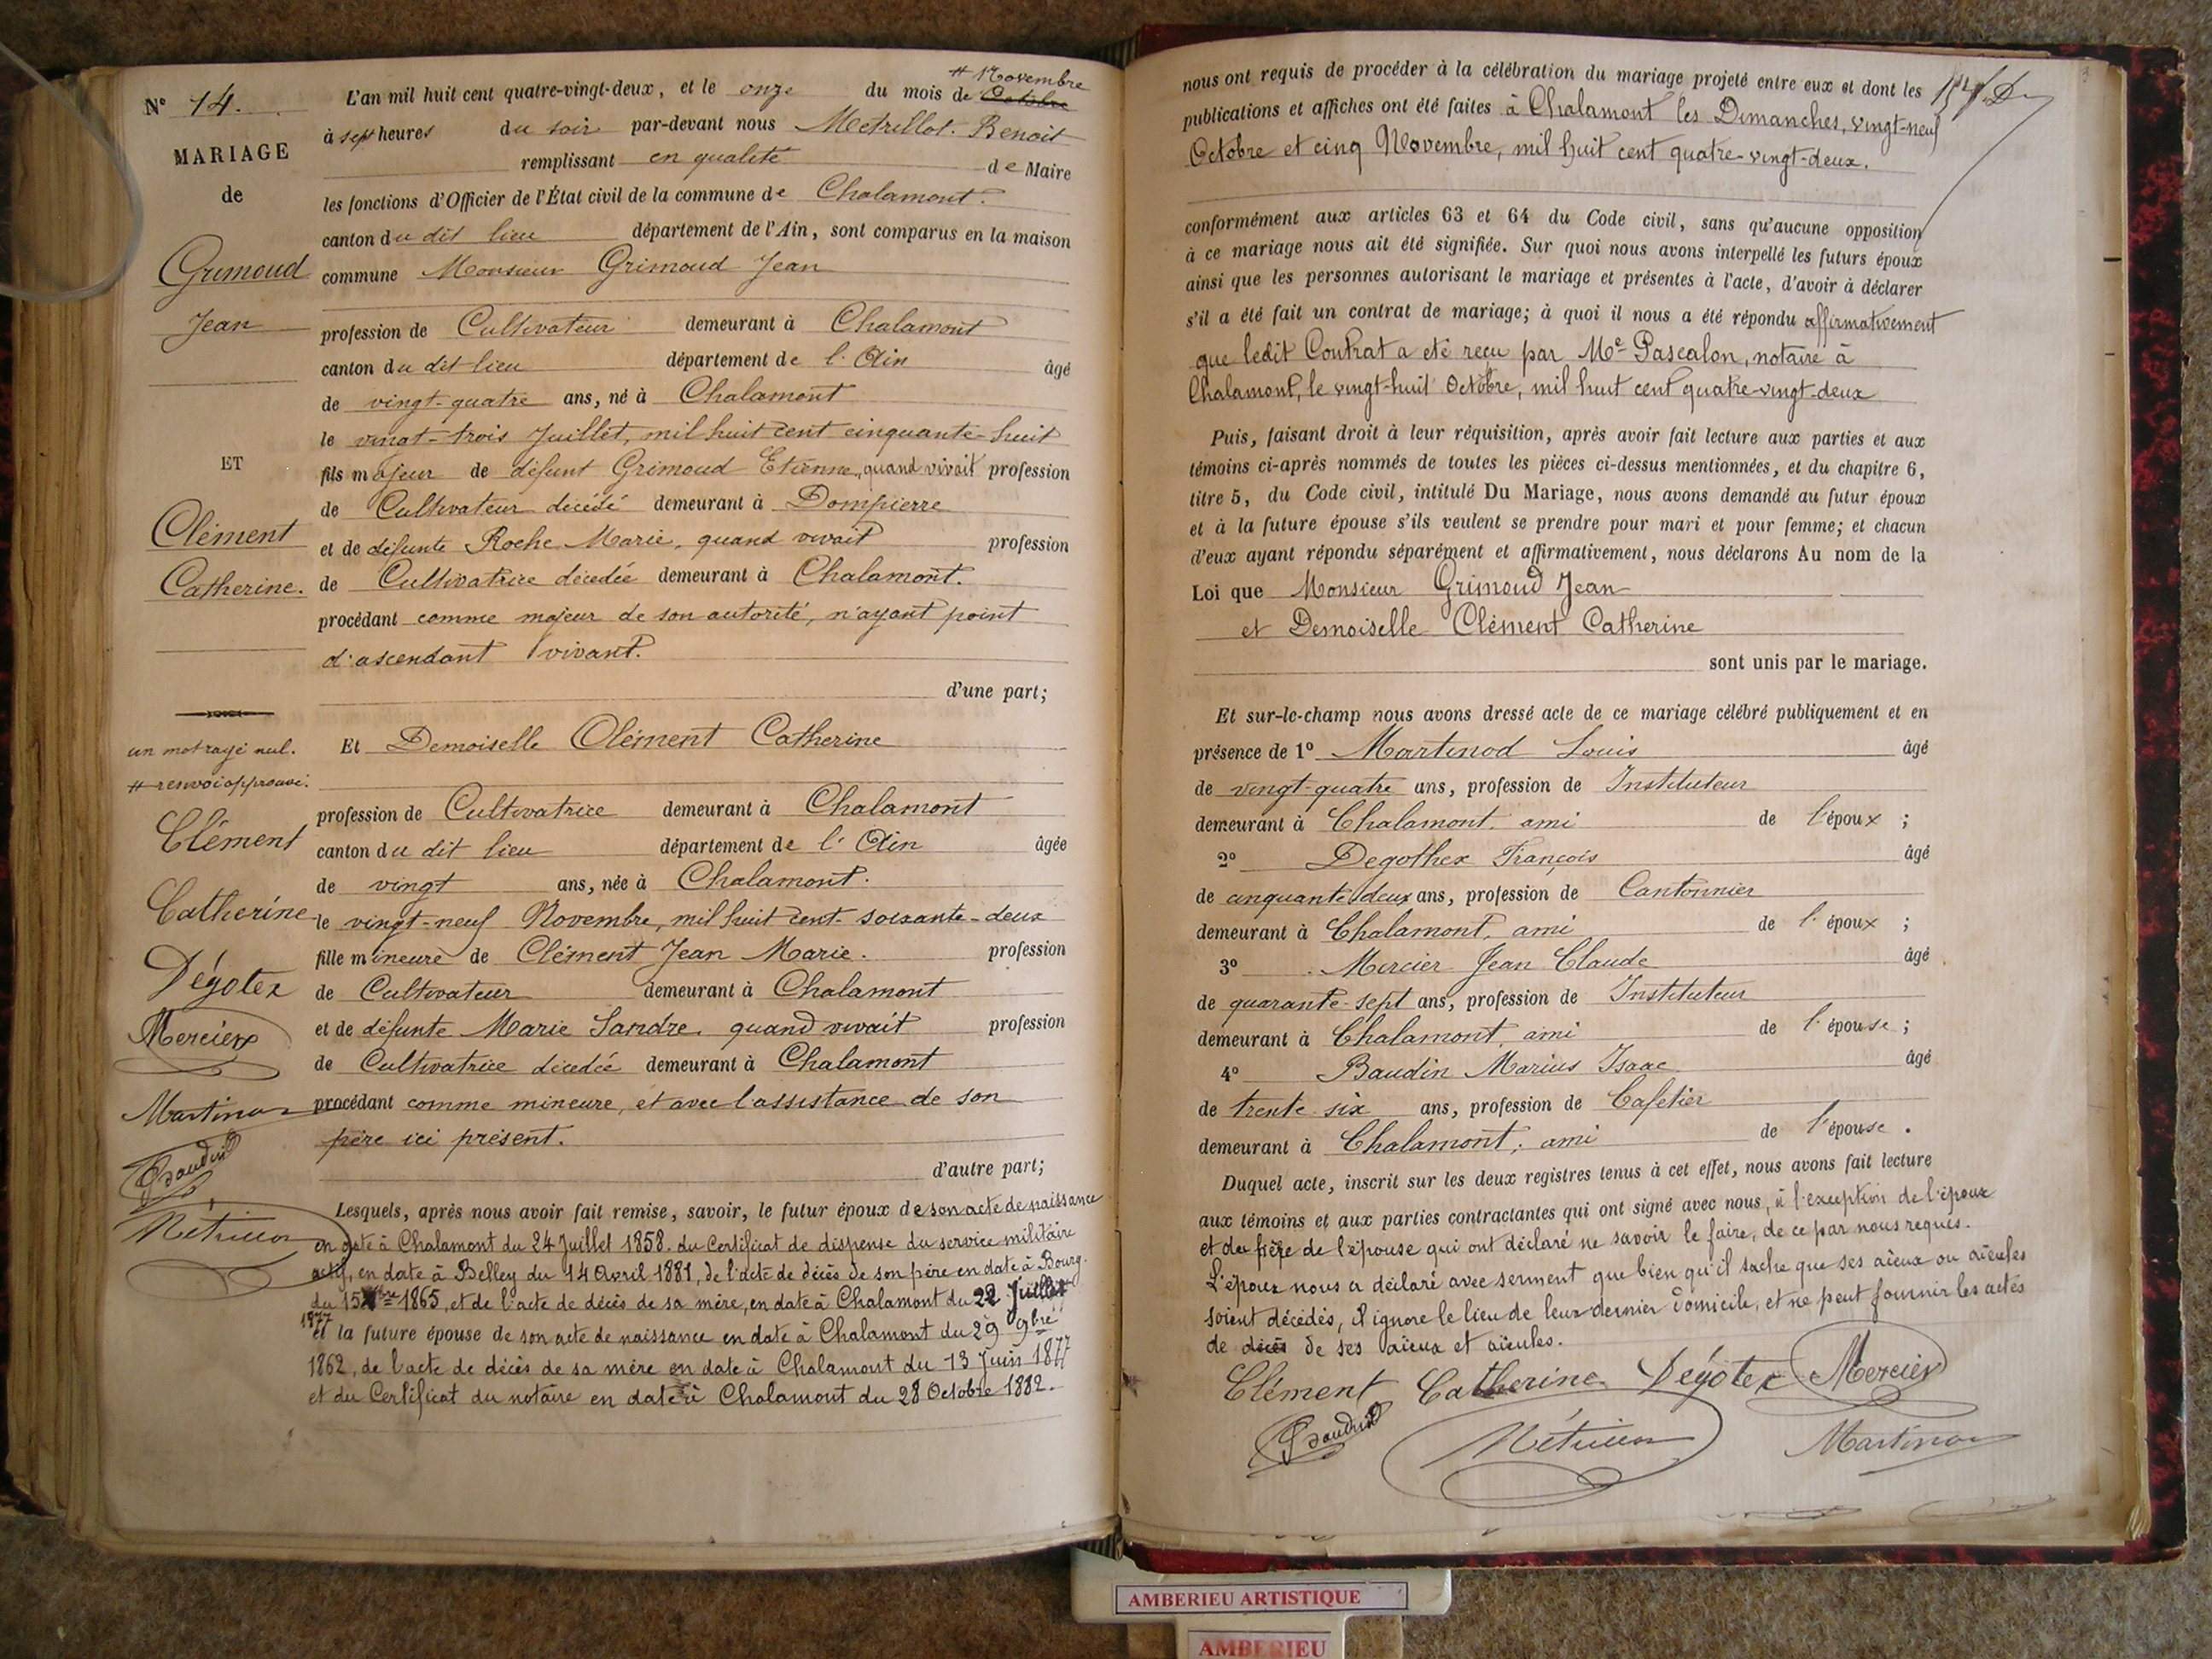 N° 14.
MARIAGE
de
Grimoud
Jean
ET
Clément
Catherine.
un mot rayé nul.
# renvoi approuvé.
Clément
Catherine
Dégotex
Mercier
Martinod
Baudin
# Novembre
L'an mil huit cent quatre-vingt-deux, et le onze du mois de Octobre
à sept heures du soir par-devant nous Metrillot Benoit
remplissant en qualité de Maire
les fonctions d'Officier de l'État civil de la commune de Chalamont.
canton du dit lieu département de l'Ain, sont comparus en la maison
commune Monsieur Grimoud Jean
profession de Cultivateur demeurant à Chalamont
canton du dit lieu département de l'Ain âgé
de vingt-quatre ans, né à Chalamont
le vingt-trois Juillet, mil huit cent cinquante-huit
fils majeur de défunt Grimoud Etienne, quand vivait profession
de Cultivateur décédé demeurant à Dompierre
et de défunte Roche Marie, quand vivait profession
de Cultivatrice décédée demeurant à Chalamont.
procédant comme majeur de son autorité, n'ayant point
d'ascendant vivant.
d'une part;
Et Demoiselle Clément Catherine
profession de Cultivatrice demeurant à Chalamont
canton du dit lieu département de l'Ain âgée
de vingt ans, née à Chalamont.
le vingt-neuf Novembre, mil huit cent soixante-deux
fille mineure de Clément Jean Marie. profession
de Cultivateur demeurant à Chalamont
et de défunte Marie Sandre, quand vivait profession
de Cultivatrice décédée demeurant à Chalamont
procédant comme mineure, et avec l'assistance de son
père ici présent.
d'autre part;
Lesquels, après nous avoir fait remise, savoir, le futur époux de son acte de naissance
en date à Chalamont du 24 Juillet 1858. du Certificat de dispense du service militaire
actif, en date à Belley du 14 Avril 1881, de l'acte de décès de son père en date à Bourg.
du 15 bre 1865, et de l'acte de décès de sa mère, en date à Chalamont du 22 Juillet
1877
et la future épouse de son acte de naissance en date à Chalamont du 29 9bre
1862, de l'acte de décès de sa mère en date à Chalamont du 13 Juin 1877
et du Certificat du notaire en date à Chalamont du 28 Octobre 1882.
nous ont requis de procéder à la célébration du mariage projeté entre eux et dont les
publications et affiches ont été faites à Chalamont les Dimanches, vingt-neuf
Octobre et cinq Novembre, mil huit cent quatre-vingt-deux.
conformément aux articles 63 et 64 du Code civil, sans qu'aucune opposition
à ce mariage nous ait été signifiée. Sur quoi nous avons interpellé les futurs époux
ainsi que les personnes autorisant le mariage et présentes à l'acte, d'avoir à déclarer
s'il a été fait un contrat de mariage; à quoi il nous a été répondu affirmativement
que ledit Contrat a été reçu par Me Pascalon, notaire à
Chalamont, le vingt-huit Octobre, mil huit cent quatre-vingt-deux
Puis, faisant droit à leur réquisition, après avoir fait lecture aux parties et aux
témoins ci-après nommés de toutes les pièces ci-dessus mentionnées, et du chapitre 6,
titre 5, du Code civil, intitulé Du Mariage, nous avons demandé au futur époux
et à la future épouse s'ils veulent se prendre pour mari et pour femme; et chacun
d'eux ayant répondu séparément et affirmativement, nous déclarons Au nom de la
Loi que Monsieur Grimoud Jean
et Demoiselle Clément Catherine
sont unis par le mariage.
Et sur-le-champ nous avons dressé acte de ce mariage célébré publiquement et en
présence de 1° Martinod Louis âgé
de vingt-quatre ans, profession de Instituteur
demeurant à Chalamont, ami de l'époux ;
2° Degothex François âgé
de cinquante deux ans, profession de Cantonnier
demeurant à Chalamont, ami de l'époux ;
3° Mercier Jean Claude âgé
de quarante-sept ans, profession de Instituteur
demeurant à Chalamont, ami de l'épouse ;
4° Baudin Marius Isaac âgé
de trente six ans, profession de Cafetier
demeurant à Chalamont, ami de l'épouse .
Duquel acte, inscrit sur les deux registres tenus à cet effet, nous avons fait lecture
aux témoins et aux parties contractantes qui ont signé avec nous, à l'exception de l'époux
et du père de l'épouse qui ont déclaré ne savoir le faire, de ce par nous requis.
L'époux nous a déclaré avec serment que bien qu'il sache que ses aïeux ou aïeules
soient décédés, il ignore le lieu de leur dernier domicile, et ne peut fournir les actes
de décès de ses aïeux et aïeules.
Clément Catherine Dégotex Mercier
Baudin Martinod
AMBERIEU ARTISTIQUE
AMBERIEU